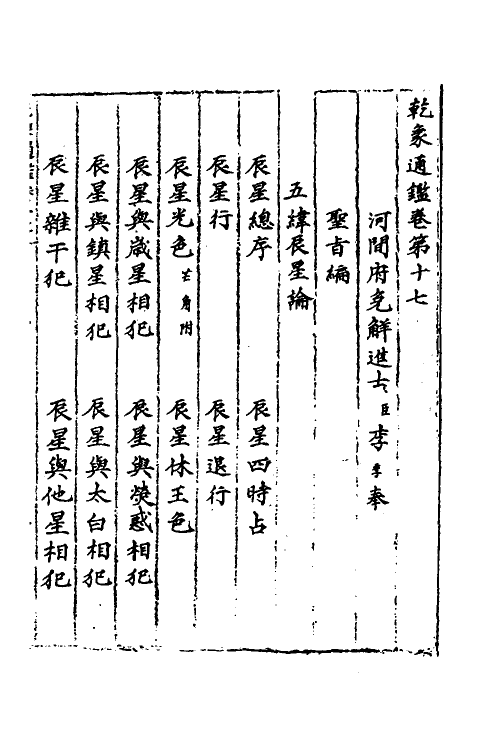 乾象通鑑卷第十七
河間府免解進士臣李季奉
聖旨編
五緯辰星論
辰星總序 辰星四時占
辰星行 辰星退行
辰星光色芒角附 辰星休王色
辰星與歲星相犯 辰星與熒惑相犯
辰星與鎮星相犯 辰星與太白相犯
辰星雜干犯 辰星與他星相犯